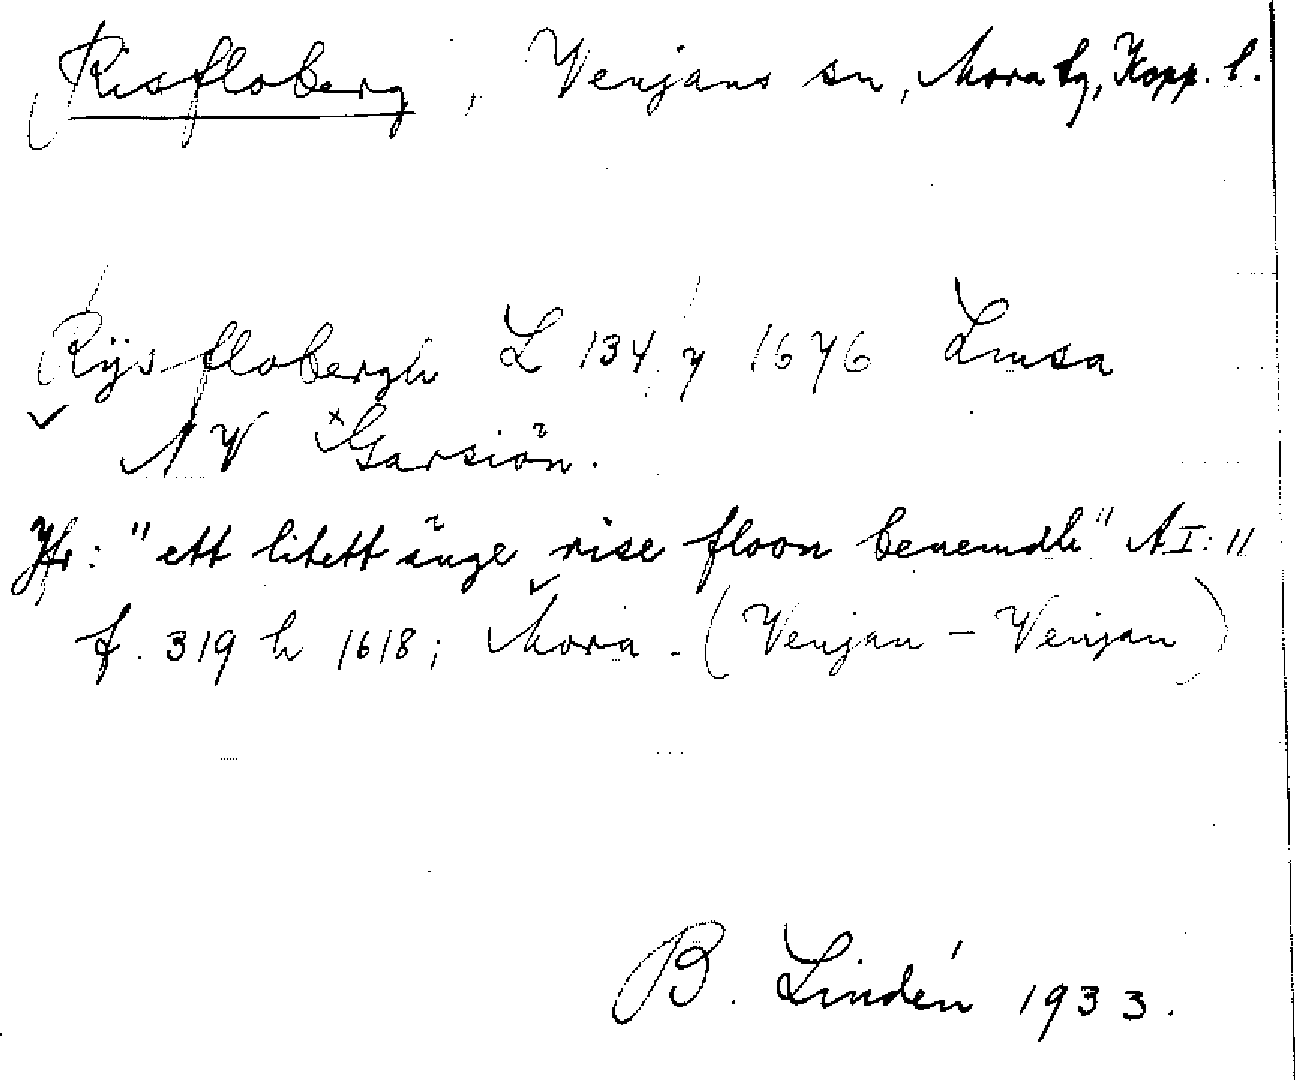 Risfloberg, Venjans sn, Mora tg, Kopp. l.
Rijsflobergh L 134 y 1676 Lmsa
NV Garsiön.
Jfr: "ett litett änge rise floon benemdh" A I: 11
f. 319 h 1618; Mora. (Venjan – Venjan)
B. Lindén 1933.